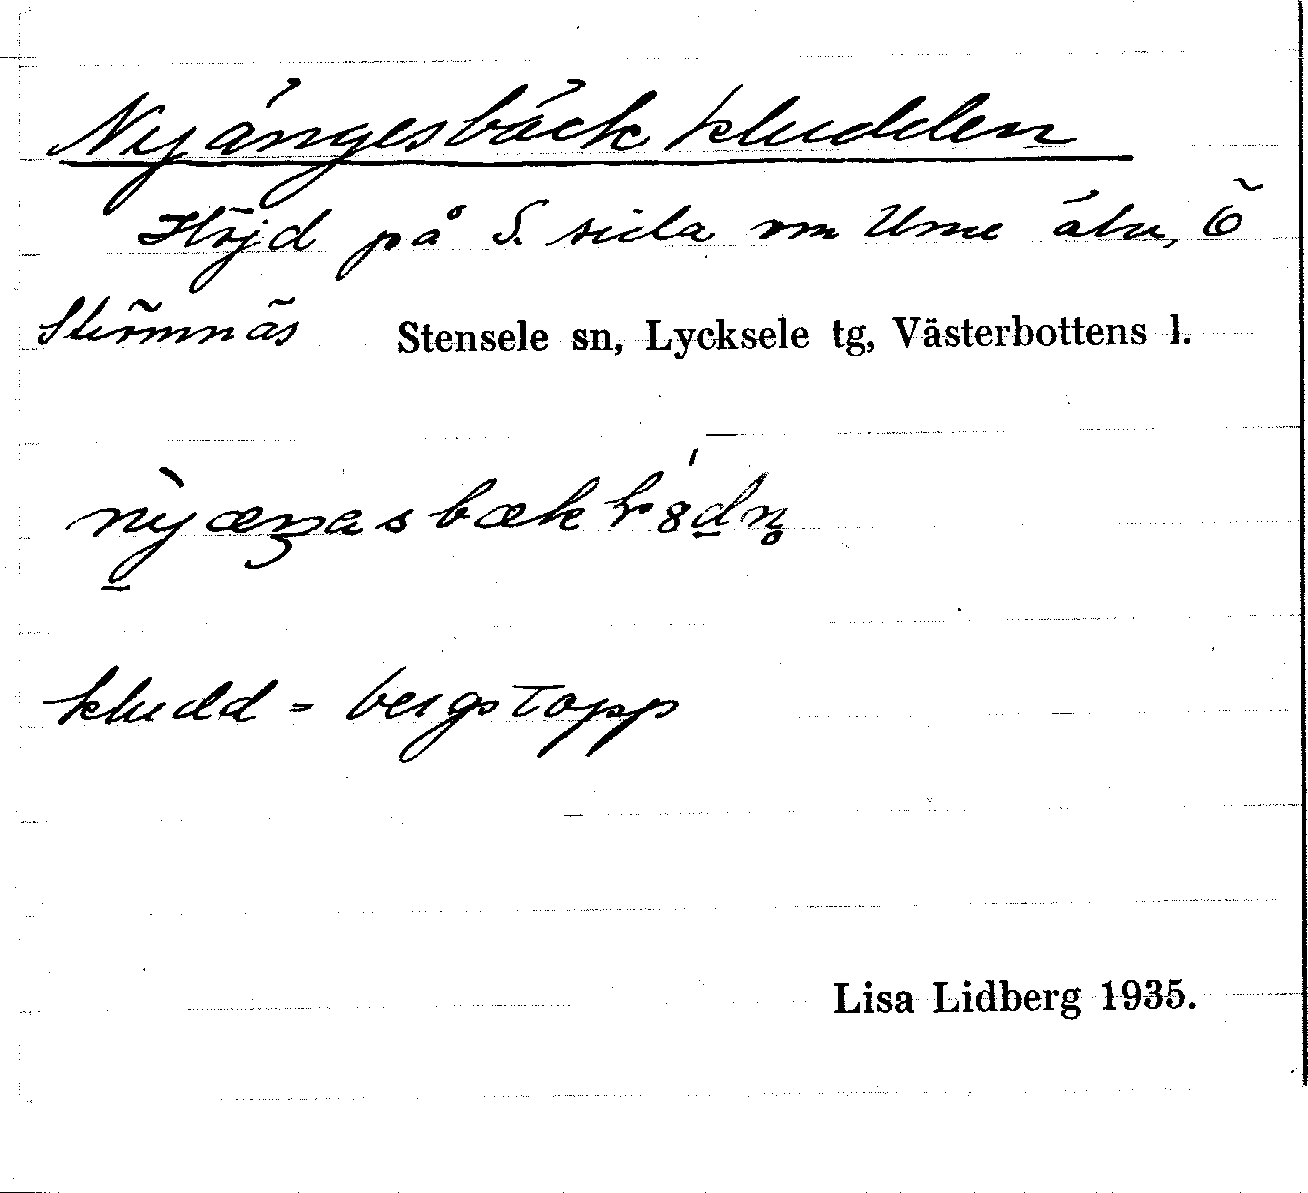 Nyängesbäckkludden
Höjd på S. sida om Ume älv, Ö
Strömnäs Stensele sn, Lycksele tg, Västerbottens l.
kludd = bergstopp
Lisa Lidberg 1935.